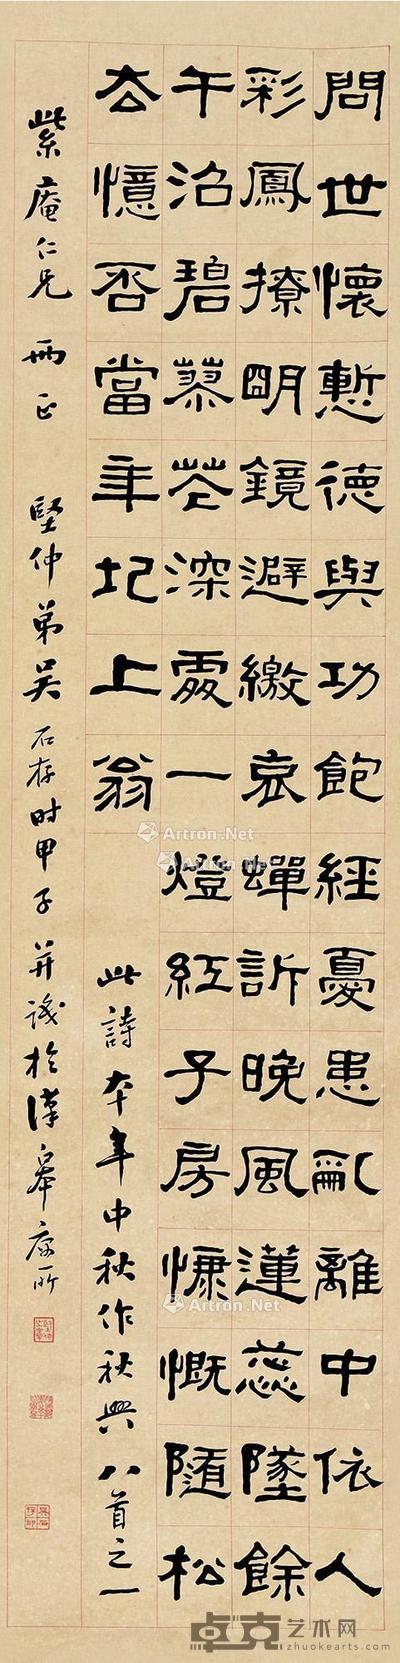 問世懷慙德與功飽經憂患亂離中依人
彩鳳撩明鏡避繳哀蟬訴晚風蓮蕊墜餘
午沼碧蓼花深處一燈紅子房慷慨隨松
去憶否當年圯上翁
此詩本年中秋作秋興八首之一
紫庵仁兄 兩正 堅仲弟吳石存時甲子并識於漢皋寓所
Artron.Net
Artron.Net
Artron.Net
Artron.Net
卓克艺术网
zhuokearts.com